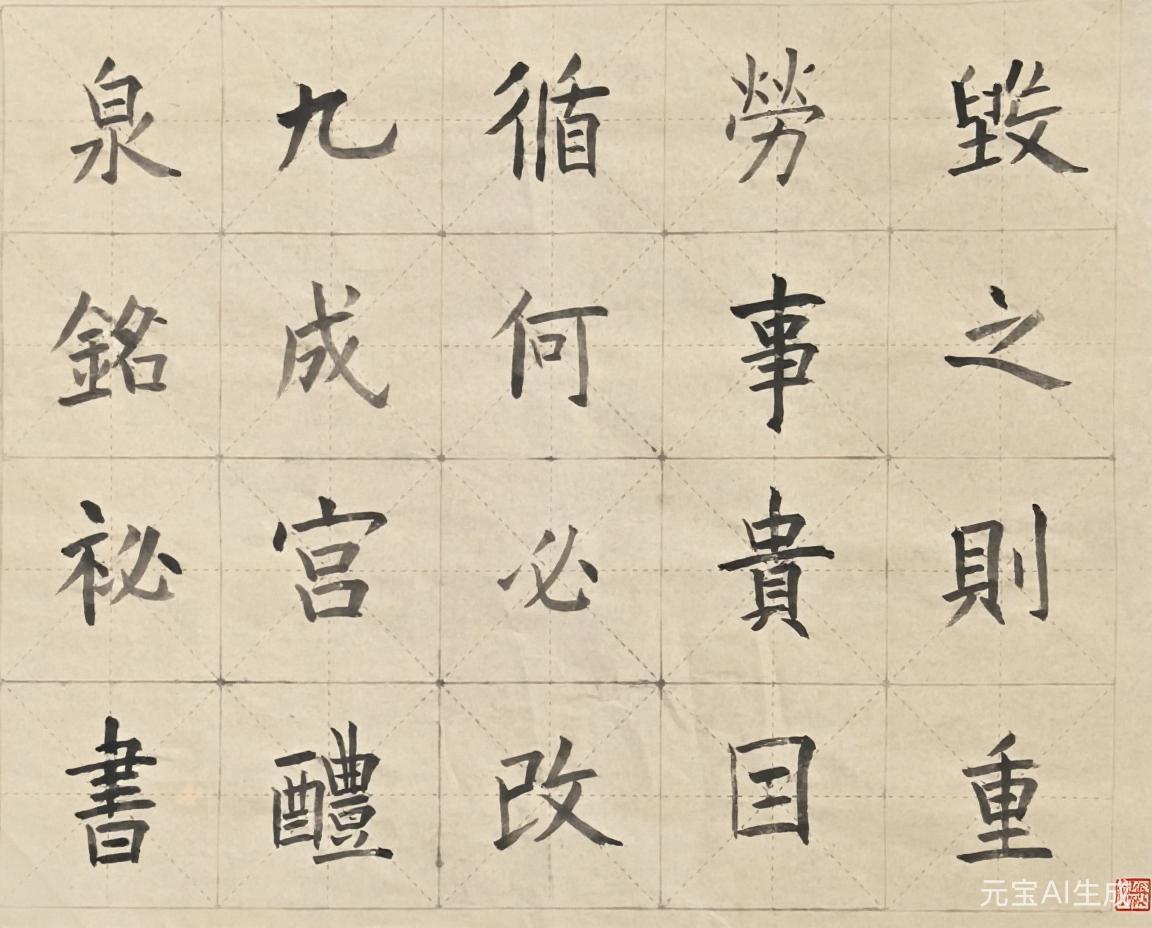 毀之則重
勞事貴囙
循何必改
九成宮醴
泉銘祕書
元宝AI生成